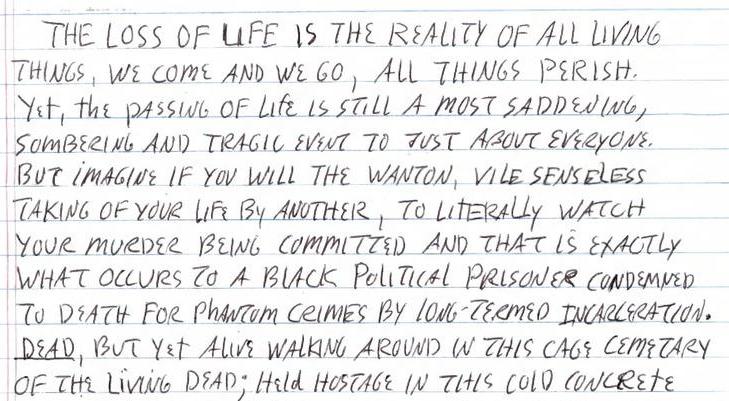 THE LOSS OF LIFE IS THE REALITY OF ALL LIVING
THINGS, WE COME AND WE GO, ALL THINGS PERISH.
Yet, the PASSING OF LIFE IS STILL A MOST SADDENING,
SOMBERING AND TRAGIC EVENT TO JUST ABOUT EVERYONE.
BUT IMAGINE IF YOU WILL THE WANTON, VILE SENSELESS
TAKING OF YOUR LIFE BY ANOTHER, TO LITERALLY WATCH
YOUR MURDER BEING COMMITTED AND THAT IS EXACTLY
WHAT OCCURS TO A BLACK POLITICAL PRISONER CONDEMNED
TO DEATH FOR PHANTOM CRIMES BY LONG-TERMED INCARCERATION.
DEAD, BUT YET ALIVE WALKING AROUND IN THIS CAGE CEMETARY
OF THE LIVING DEAD; HELD HOSTAGE IN THIS COLD CONCRETE